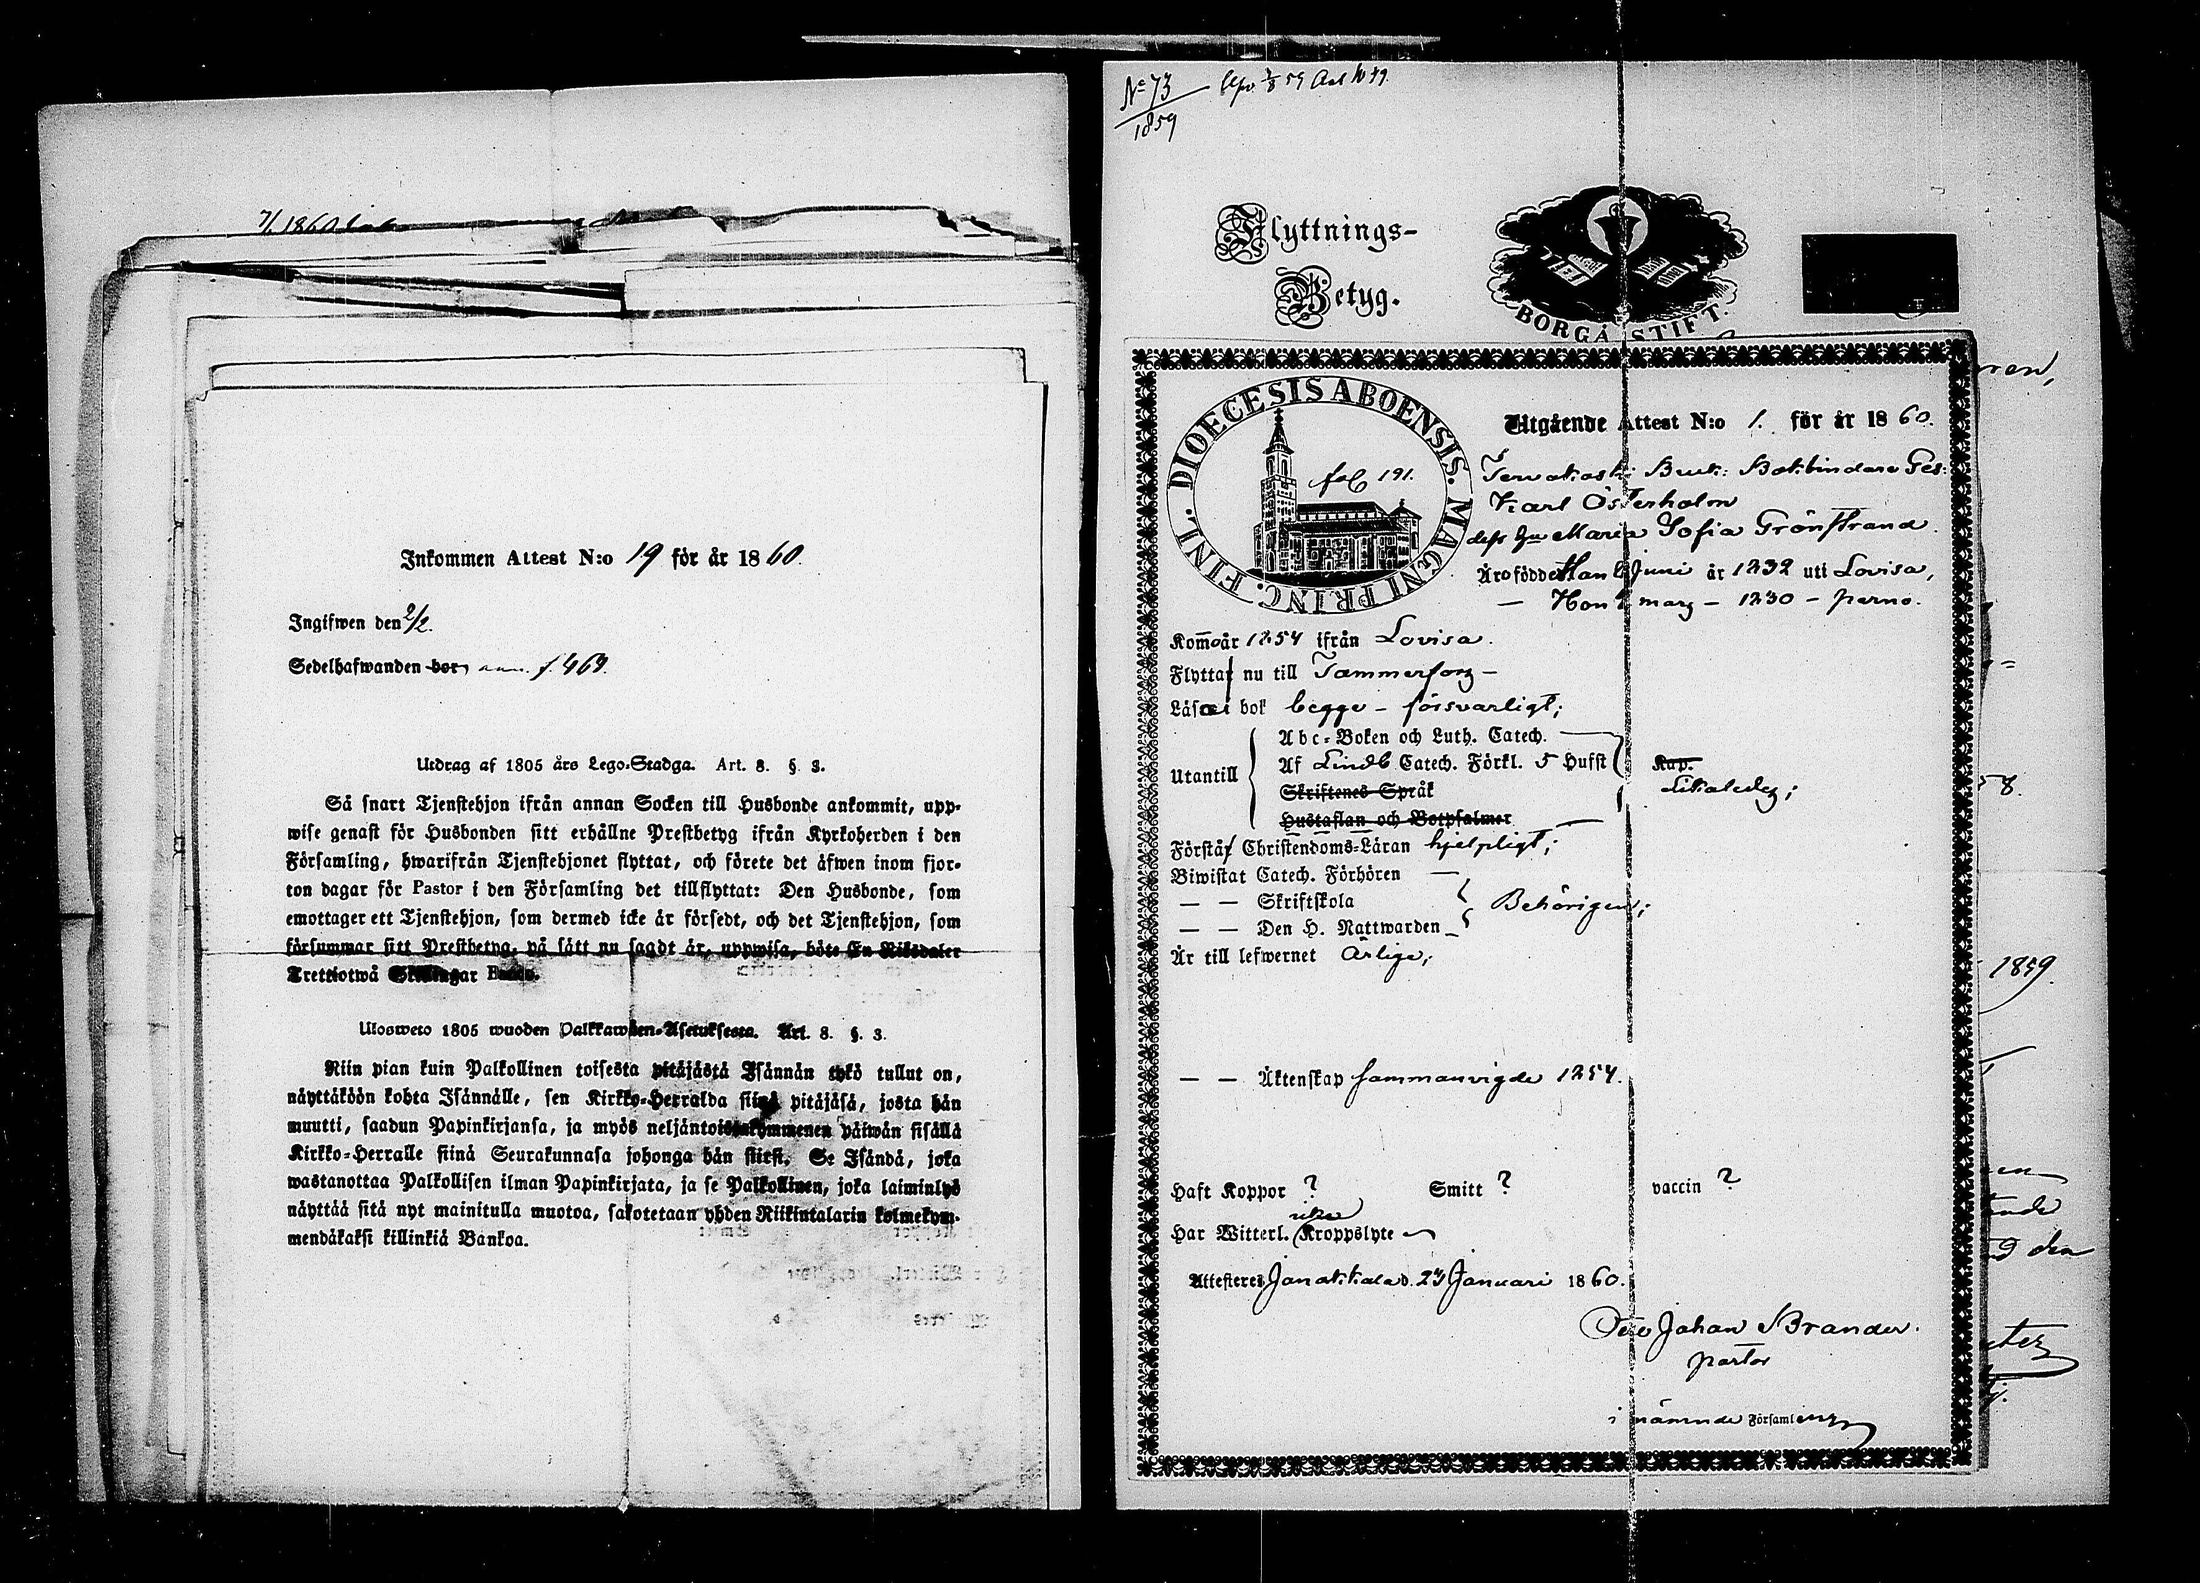 7/1 1860
Inkommen Attest N:o 19 för år 1860.
Ingifwen den 2/2.
Sedelhafwanden bor, ann. f. 469.
Utdrag af 1805 års Lego-Stadga. Art. 8. §. 3.
Så snart Tjenstehjon ifrån annan Socken till Husbonde ankommit, upp-
wise genast för Husbonden sitt erhållne Prestbetyg ifrån Kyrkoherden i den
Församling, hwarifrån Tjenstehjonet flyttat, och förete det äfwen inom fjor-
ton dagar för Pastor i den Församling det tillflyttat: Den Husbonde, som
emottager ett Tjenstehjon, som dermed icke är försedt, och det Tjenstehjon, som
försummar sitt Prestbetyg, på sätt nu sagdt är, uppwisa, böte En Riksdaler
Trettiotwå Skillingar Banco.
Ulosweto 1805 wuoden Palkkawäen-Asetuksesta. Art. 8. §. 3.
Niin pian kuin Palkollinen toisesta pitäjästä Isännän tykö tullut on,
näyttäköön kohta Isännälle, sen Kirkko-Herralda siinä pitäjäsä, josta hän
muutti, saadun Papinkirjansa, ja myös neljäntoistakymmenen päiwän sisällä
Kirkko-Herralle siinä Seurakunnasa johonga hän siirsi. Se Isändä, joka
wastanottaa Palkollisen ilman Papinkirjata, ja se Palkollinen, joka laiminlyö
näyttää sitä nyt mainitulla muotoa, sakotetaan yhden Riikintalarin kolmekym-
mendäkaksi killinkiä Bankoa.
No 73
1859
Flyttnings-
Betyg.
BORGÅ STIFT.
DIOECESIS ABOENSIS. MAGNI PRINC. FINL.
fol 191.
Utgående Attest N:o 1. för år 1860.
Terwakoski Bruk: Bokbindare Ges:
Karl Österholm
dess hu Maria Sofia Grönstrand.
Äro födde Han Juni år 1832 uti Lovisa,
— Hon mars — 1830 — perno.
Kommo år 1854 ifrån Lovisa.
Flytta nu till Tammerfors —
Läsa i bok begge — försvarligt;
Utantill
Abc-Boken och Luth. Catech. —
Af Lindb Catech. Förkl. 5 Hufst
Skriftenes Språk
Hustaflan och Botpsalmer
Kap.
Likaledes;
Förstå Christendoms-Läran hjelpligt;
Biwistat Catech. Förhören —
— — Skriftskola
— — Den H. Nattwarden —
Behörigen;
Är till lefwernet Ärlige;
— — Äktenskap sammanvigde 1854.
Haft Koppor ? Smitt ? vaccin ?
Har Witterl. Kroppslyte
Attesteres Janakkala d. 23 Januari 1860.
Otto Johan Brander.
pastor
i nämnde Församling
1859.